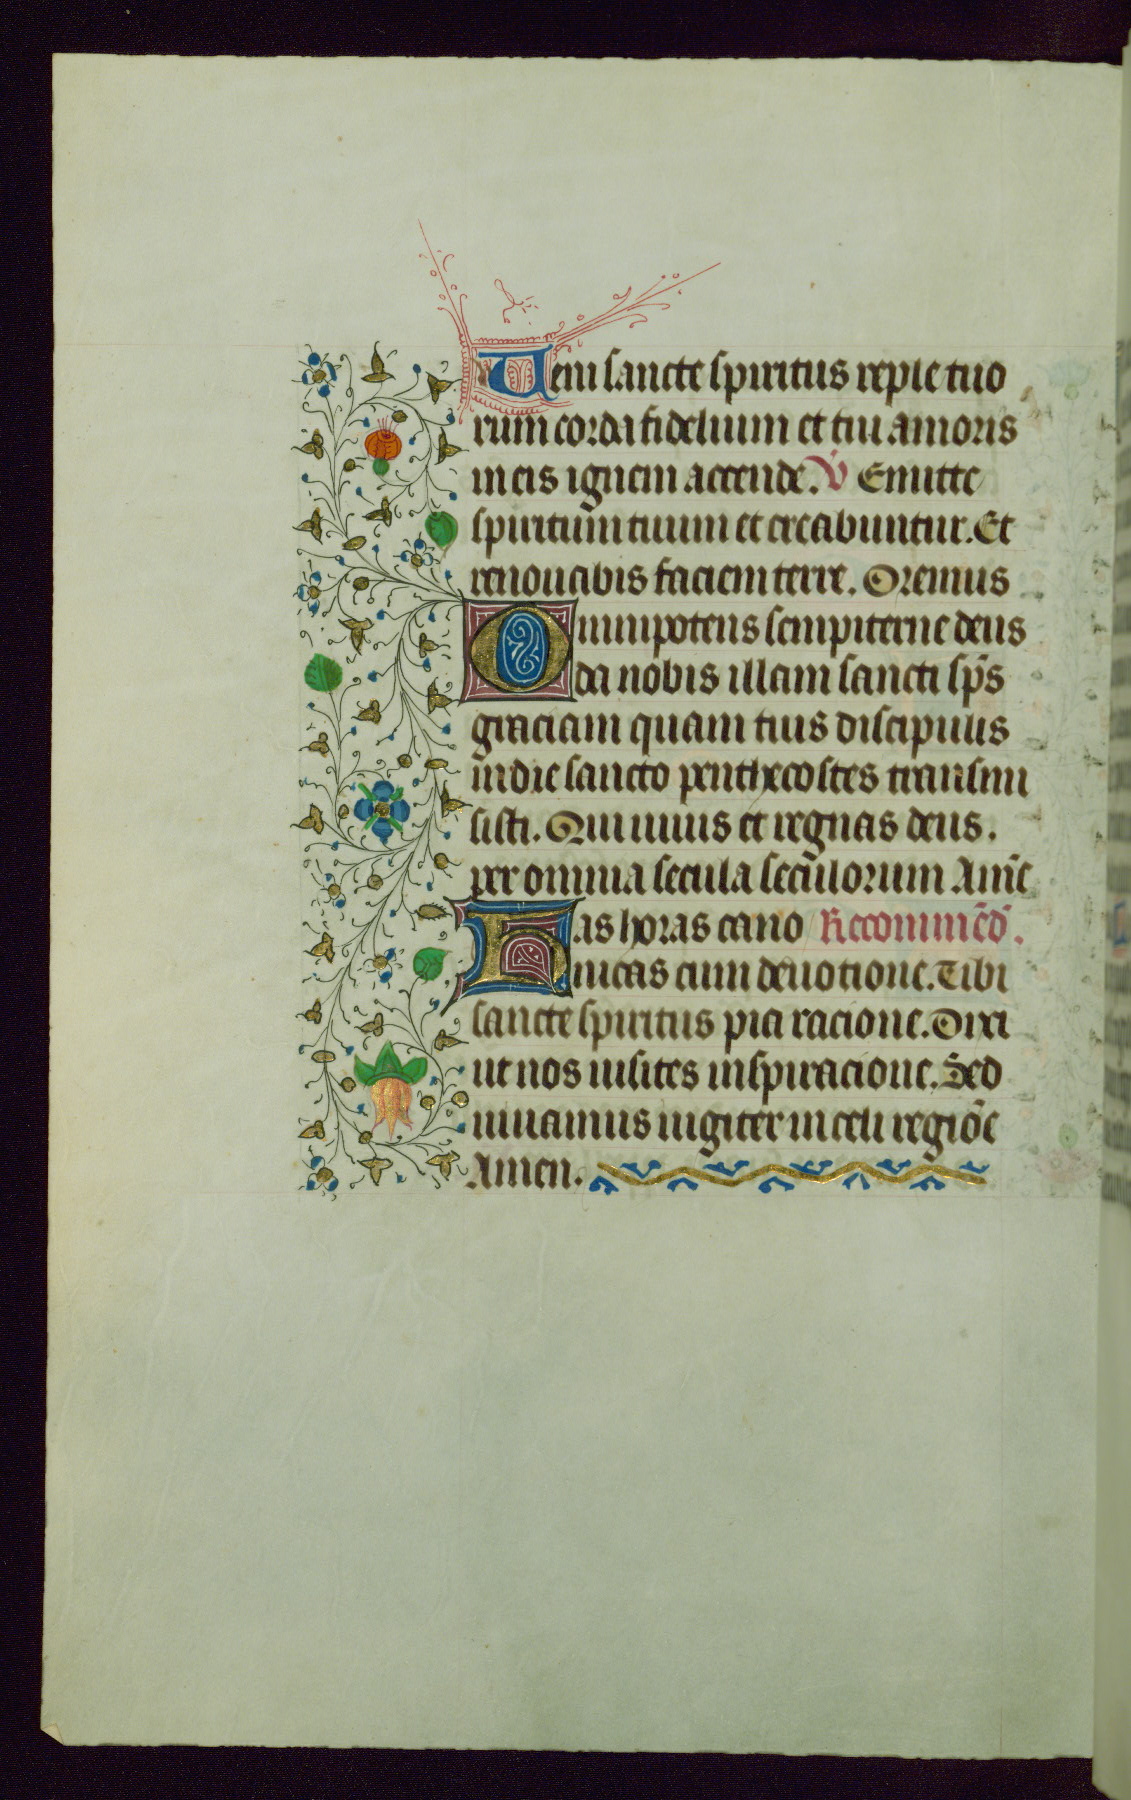 Veni sancte spiritus reple tuo
rum corda fidelium et tui amoris
in eis ignem accende. V̇ Emitte
spiritum tuum et creabuntur. Et
renouabis faciem terre. Oremus
Omnipotens sempiterne deus
da nobis illam sancti sp̄s
graciam quam tuis discipulis
in die sancto penthecostes transmi
sisti. Qui uiuis et regnas deus.
per omnia secula seculorum Amē
Has horas cano Recommēd̄.
nicas cum deuotione. Tibi
sancte spiritus pia racione. Dixi
ut nos uisites inspiracione. Sed
uiuamus iugiter in celi regiōe
Amen.